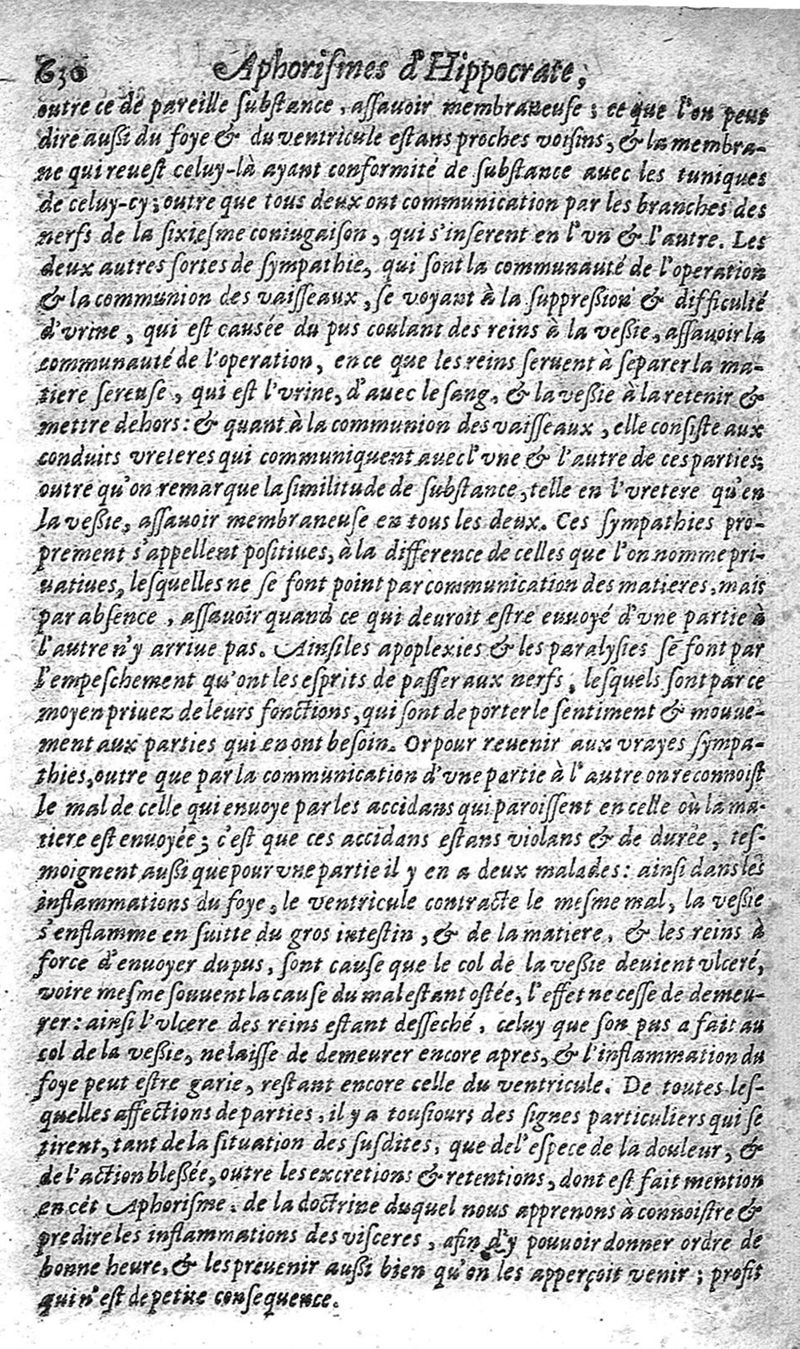 630 Aphorismes d'Hippocrate,
outre ce de pareille substance, assauoir membraneuse; ce que l'on peut
dire aussi du foye & du ventricule estans proches voisins, & la membra-
ne qui reuest celuy-là ayant conformité de substance auec les tuniques
de celuy-cy; outre que tous deux ont communication par les branches des
nerfs de la sixiesme coniugaison, qui s'inserent en l'vn & l'autre. Les
deux autres sortes de sympathie, qui sont la communauté de l'operation
& la communion des vaisseaux, se voyant à la suppression & difficulté
d'vrine, qui est causée du pus coulant des reins à la vessie, assauoir la
communauté de l'operation, en ce que les reins seruent à separer la ma-
tiere sereuse, qui est l'vrine, d'auec le sang, & la vessie à la retenir &
mettre dehors: & quant à la communion des vaisseaux, elle consiste aux
conduits vreteres qui communiquent auec l'vne & l'autre de ces parties;
outre qu'on remarque la similitude de substance, telle en l'vretere qu'en
la vessie, assauoir membraneuse en tous les deux. Ces sympathies pro-
prement s'appellent positiues, à la difference de celles que l'on nomme pri-
uatiues, lesquelles ne se font point par communication des matieres, mais
par absence, assauoir quand ce qui deuroit estre enuoyé d'vne partie à
l'autre n'y arriue pas. Ainsi les apoplexies & les paralysies se font par
l'empeschement qu'ont les esprits de passer aux nerfs, lesquels sont par ce
moyen priuez de leurs fonctions, qui sont de porter le sentiment & mouue-
ment aux parties qui en ont besoin. Or pour reuenir aux vrayes sympa-
thies, outre que par la communication d'vne partie à l'autre on reconnoist
le mal de celle qui enuoye par les accidans qui paroissent en celle où la ma-
tiere est enuoyée; c'est que ces accidans estans violans & de durée, tes-
moignent aussi que pour vne partie il y en a deux malades: ainsi dans les
inflammations du foye, le ventricule contracte le mesme mal, la vessie
s'enflamme en suitte du gros intestin, & de la matiere, & les reins à
force d'enuoyer du pus, sont cause que le col de la vessie deuient vlceré,
voire mesme souuent la cause du mal estant ostée, l'effet ne cesse de demeu-
rer: ainsi l'vlcere des reins estant desseché, celuy que son pus a fait au
col de la vessie, ne laisse de demeurer encore apres, & l'inflammation du
foye peut estre garie, restant encore celle du ventricule. De toutes les-
quelles affections de parties, il y a tousiours des signes particuliers qui se
tirent, tant de la situation des susdites, que de l'espece de la douleur, &
de l'action blessée, outre les excretions & retentions, dont est fait mention
en cét Aphorisme, de la doctrine duquel nous apprenons à connoistre &
predire les inflammations des visceres, afin d'y pouuoir donner ordre de
bonne heure, & les preuenir aussi bien qu'on les apperçoit venir; profit
qui n'est de petite consequence.